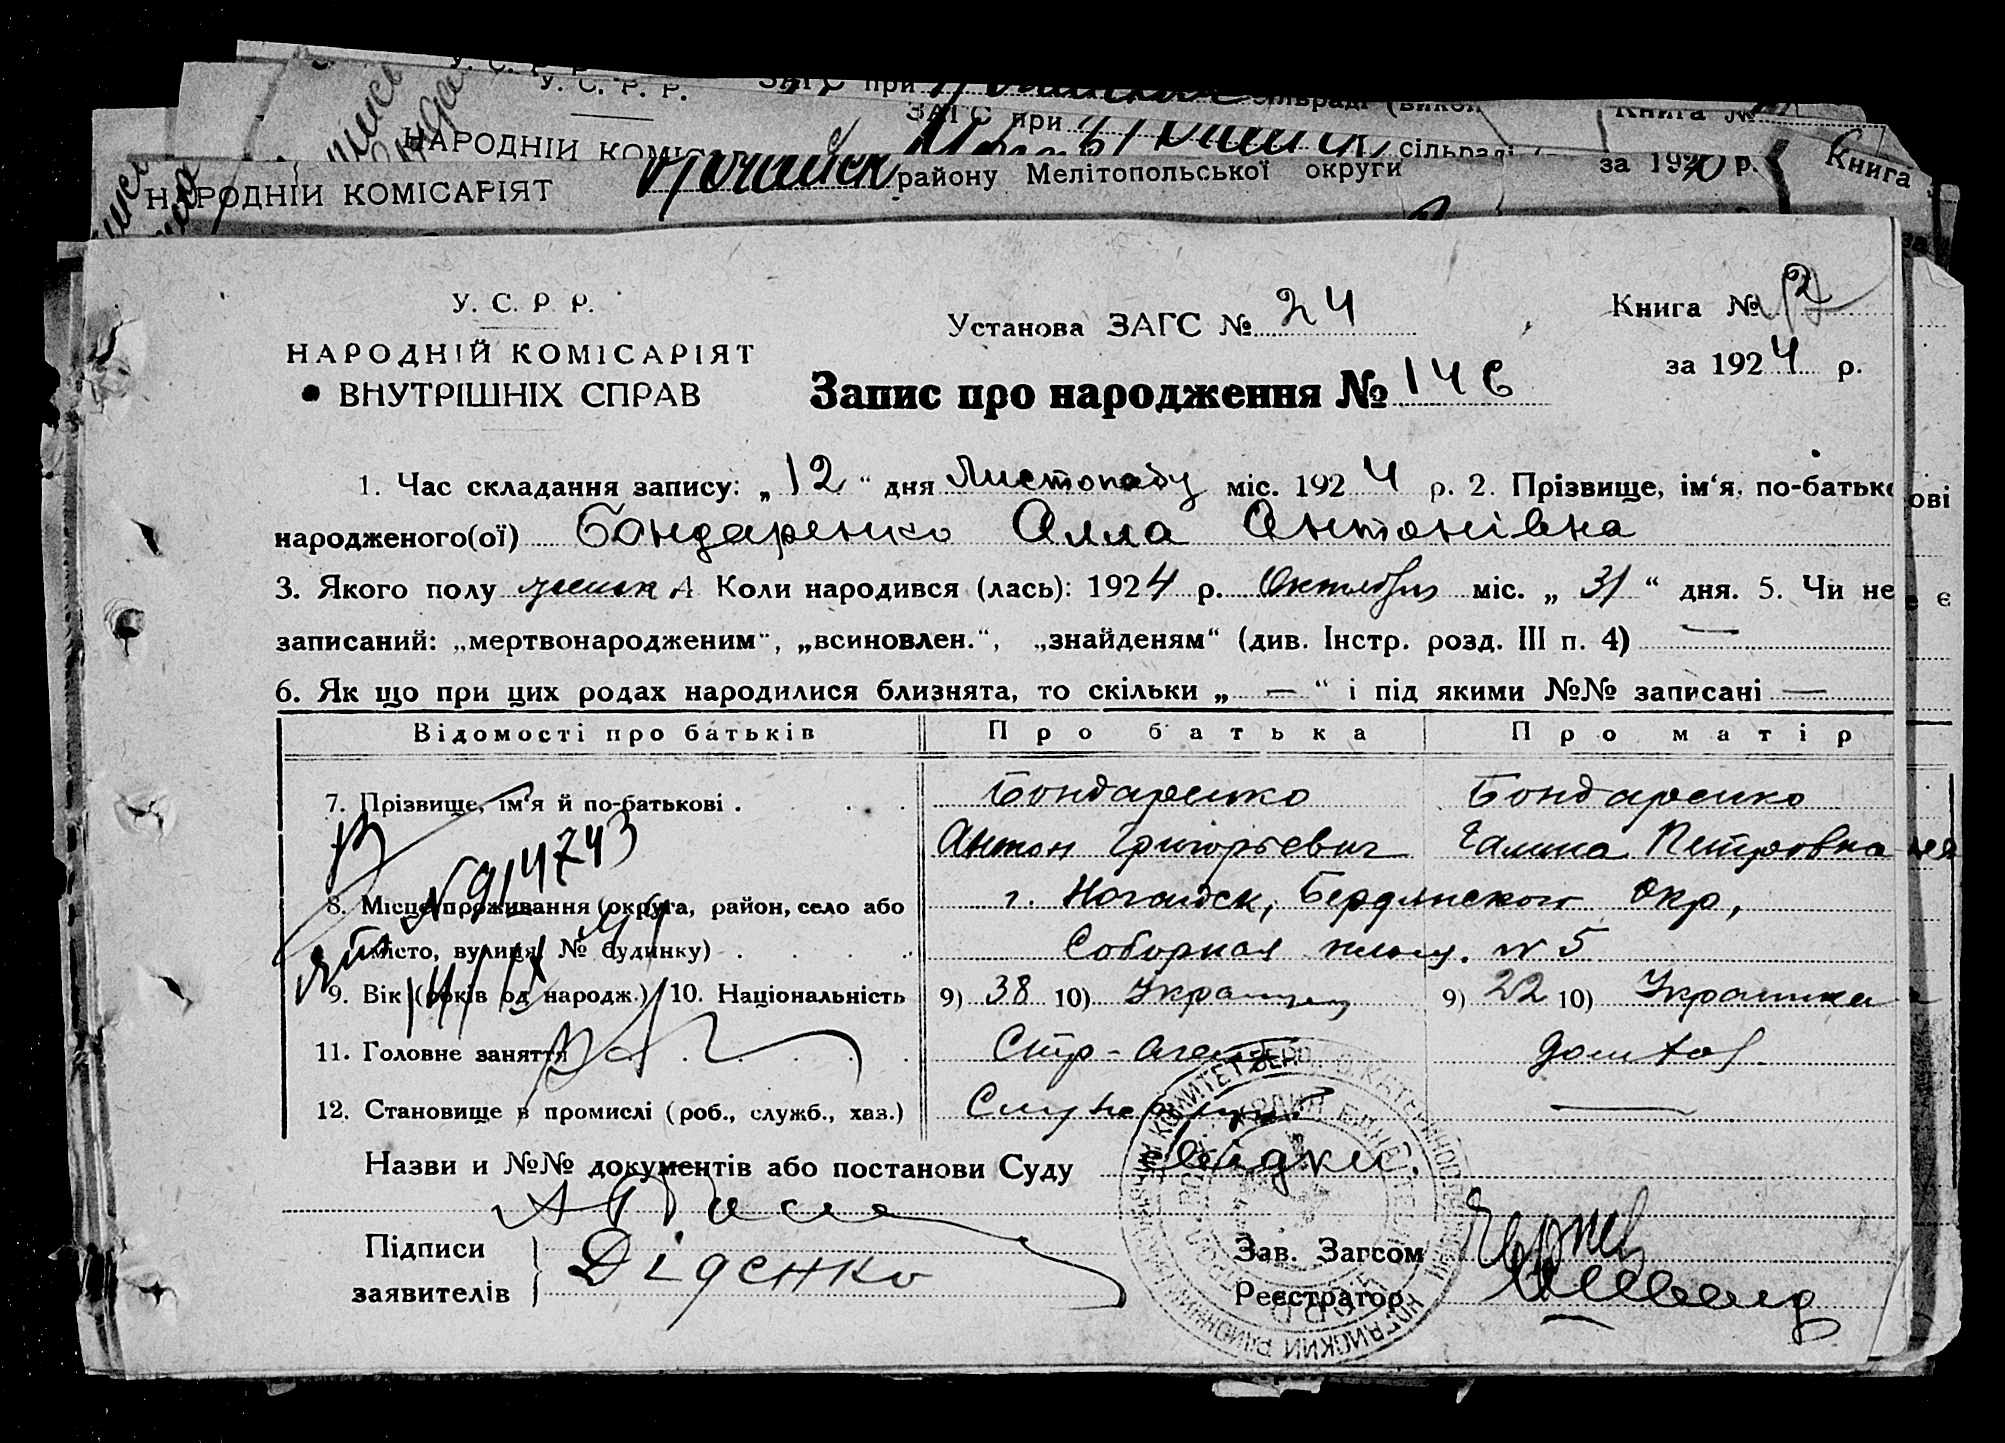 У. С. Р. Р.
ЗАГС при
Книга №
НАРОДНІЙ
ЗАГС при
за 1920 р.
Книга
НАРОДНІЙ КОМІСАРІЯТ
району Мелітопольської округи
У. С. Р. Р.
НАРОДНІЙ КОМІСАРІЯТ
ВНУТРІШНІХ СПРАВ
Установа ЗАГС № 24
Книга № 2
за 1924 р.
Запис про народження № 146
1. Час складання запису: „12“ дня Листопаду міс. 1924 р. 2. Прізвище, ім‘я, по-батькові
народженого(ої) Бондаренко Алла Антонівна
3. Якого полу 4 Коли народився (лась): 1924 р. Октября міс. „31“ дня. 5. Чи не є
записаний: „мертвонародженим“, „всиновлен.“, „знайденям“ (див. Інстр. розд. III п. 4) —
6. Як що при цих родах народилися близнята, то скільки „ — “ і під якими №№ записані —
Відомості про батьків
Про батька
Про матір
7. Прізвище, ім‘я й по-батькові
Бондаренко
Бондаренко
Антон Григорьевич
Галина Петровна
8. Місце проживання (округа, район, село або
г. Ногайск, Бердянского Окр,
місто, вулиця, № будинку)
Соборная площ. № 5
9. Вік (років од народж.) 10. Національність
9) 38 10) Украинец
9) 22 10) Украинка
11. Головне заняття
Стр-агент
12. Становище в промислі (роб., служб., хаз.)
Служащий
—
Назви и №№ документів або постанови Суду
Підписи
заявителів
Діденко
Зав. Загсом
Реєстратор